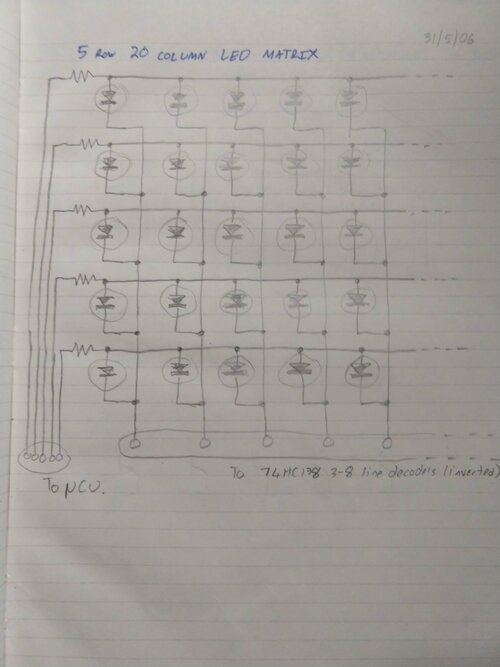 31/5/05
5 ROW 20 COLUMN LED MATRIX
To μCU.
To 74HC138 3-8 line decoders (inverted)